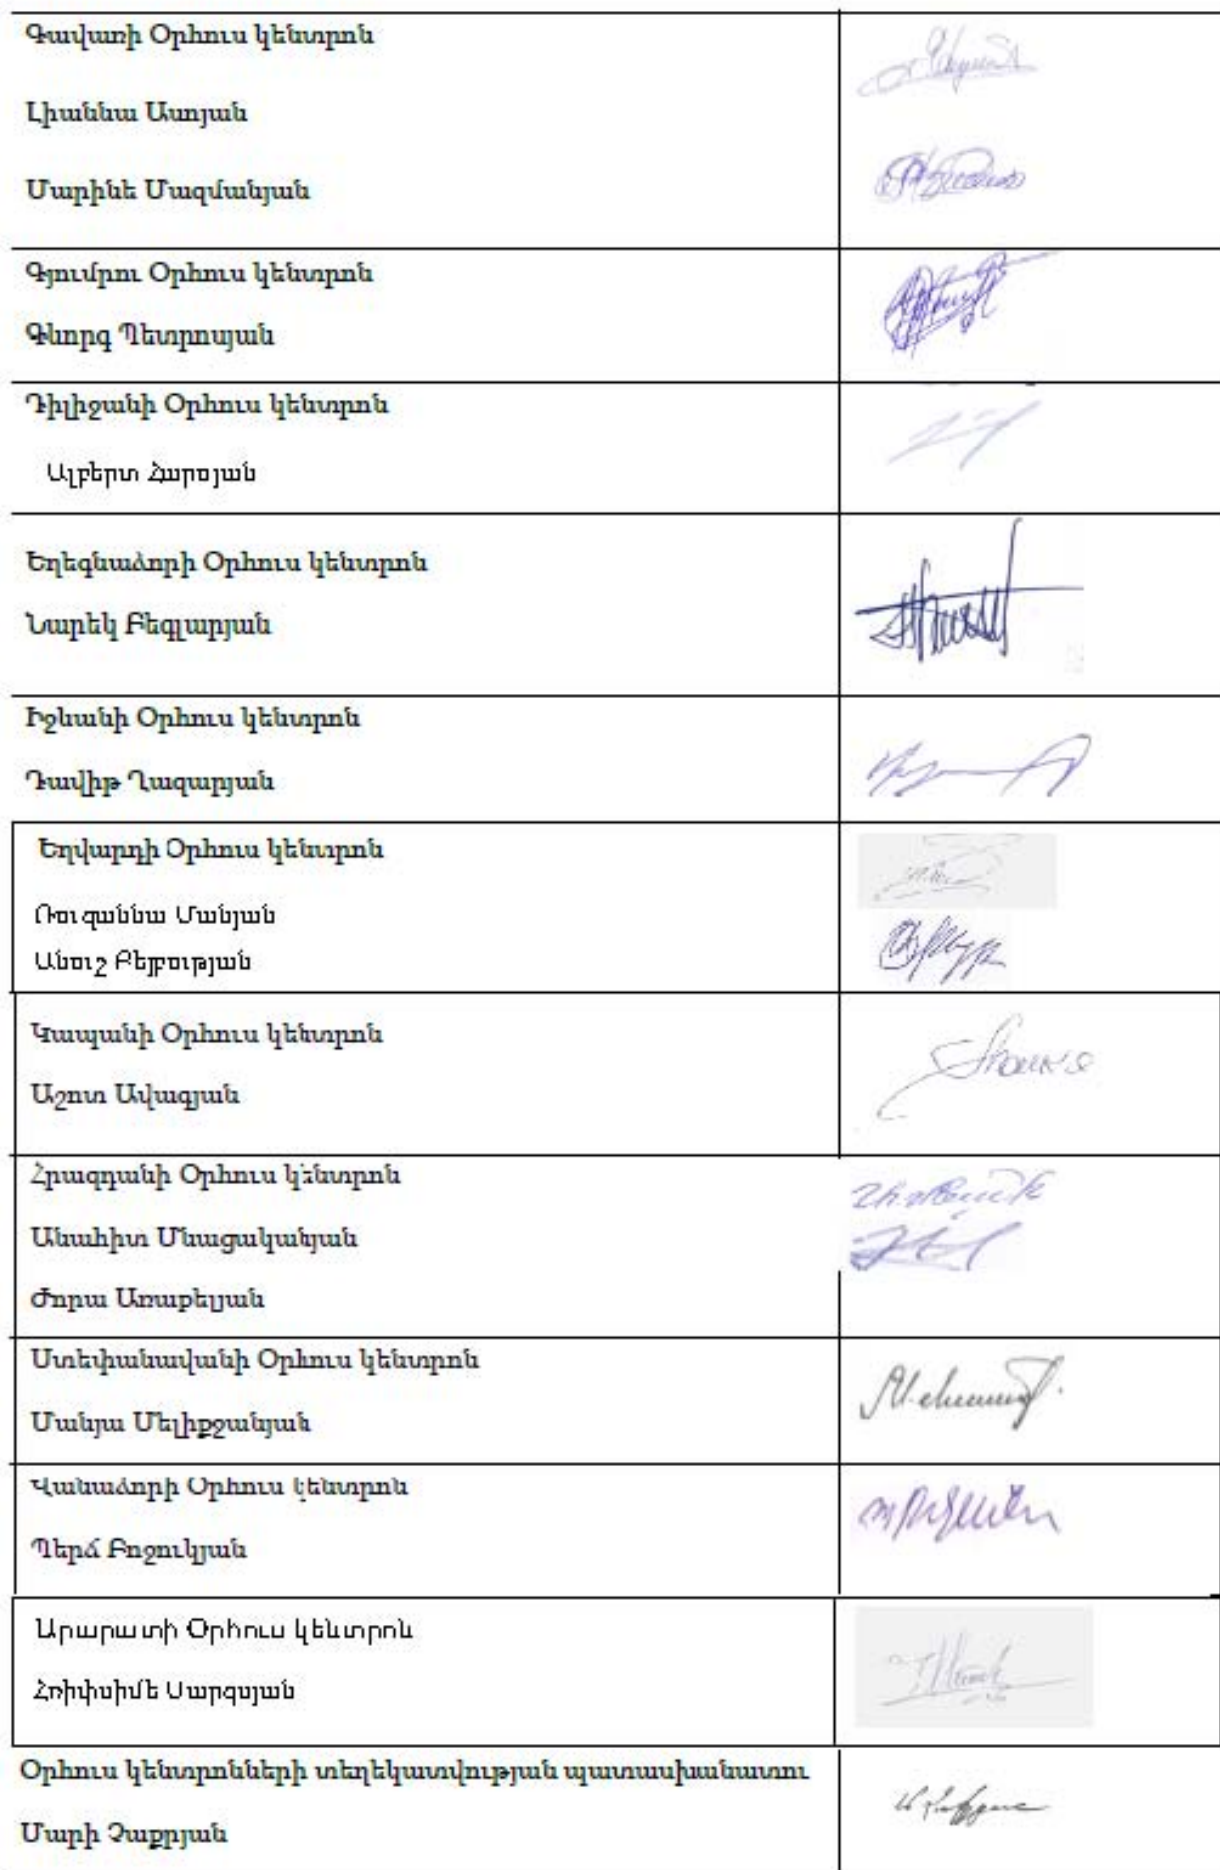 Գավառի Օրհուս կենտրոն
Լիաննա Ասոյան
Մարինե Մազմանյան
Գյումրու Օրհուս կենտրոն
Գևորգ Պետրոսյան
Դիլիջանի Օրհուս կենտրոն
Ալբերտ Հարոյան
Եղեգնաձորի Օրհուս կենտրոն
Նարեկ Բեգլարյան
Իջևանի Օրհուս կենտրոն
Դավիթ Ղազարյան
Եղվարդի Օրհուս կենտրոն
Ռուզաննա Մանյան
Անուշ Բեյբության
Կապանի Օրհուս կենտրոն
Աշոտ Ավագյան
Հրազդանի Օրհուս կենտրոն
Անահիտ Մնացականյան
Ժորա Առաքելյան
Ստեփանավանի Օրհուս կենտրոն
Մանյա Մելիքջանյան
Վանաձորի Օրհուս կենտրոն
Պերճ Բոջուկյան
Արարատի Օրհուս կենտրոն
Հռիփսիմե Սարգսյան
Օրհուս կենտրոնների տեղեկատվության պատասխանատու
Մարի Չաքրյան